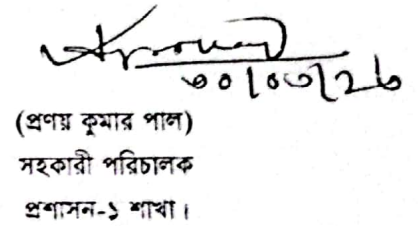 ৩০/০৩/২৬
(প্রণয় কুমার পাল)
সহকারী পরিচালক
প্রশাসন-১ শাখা।